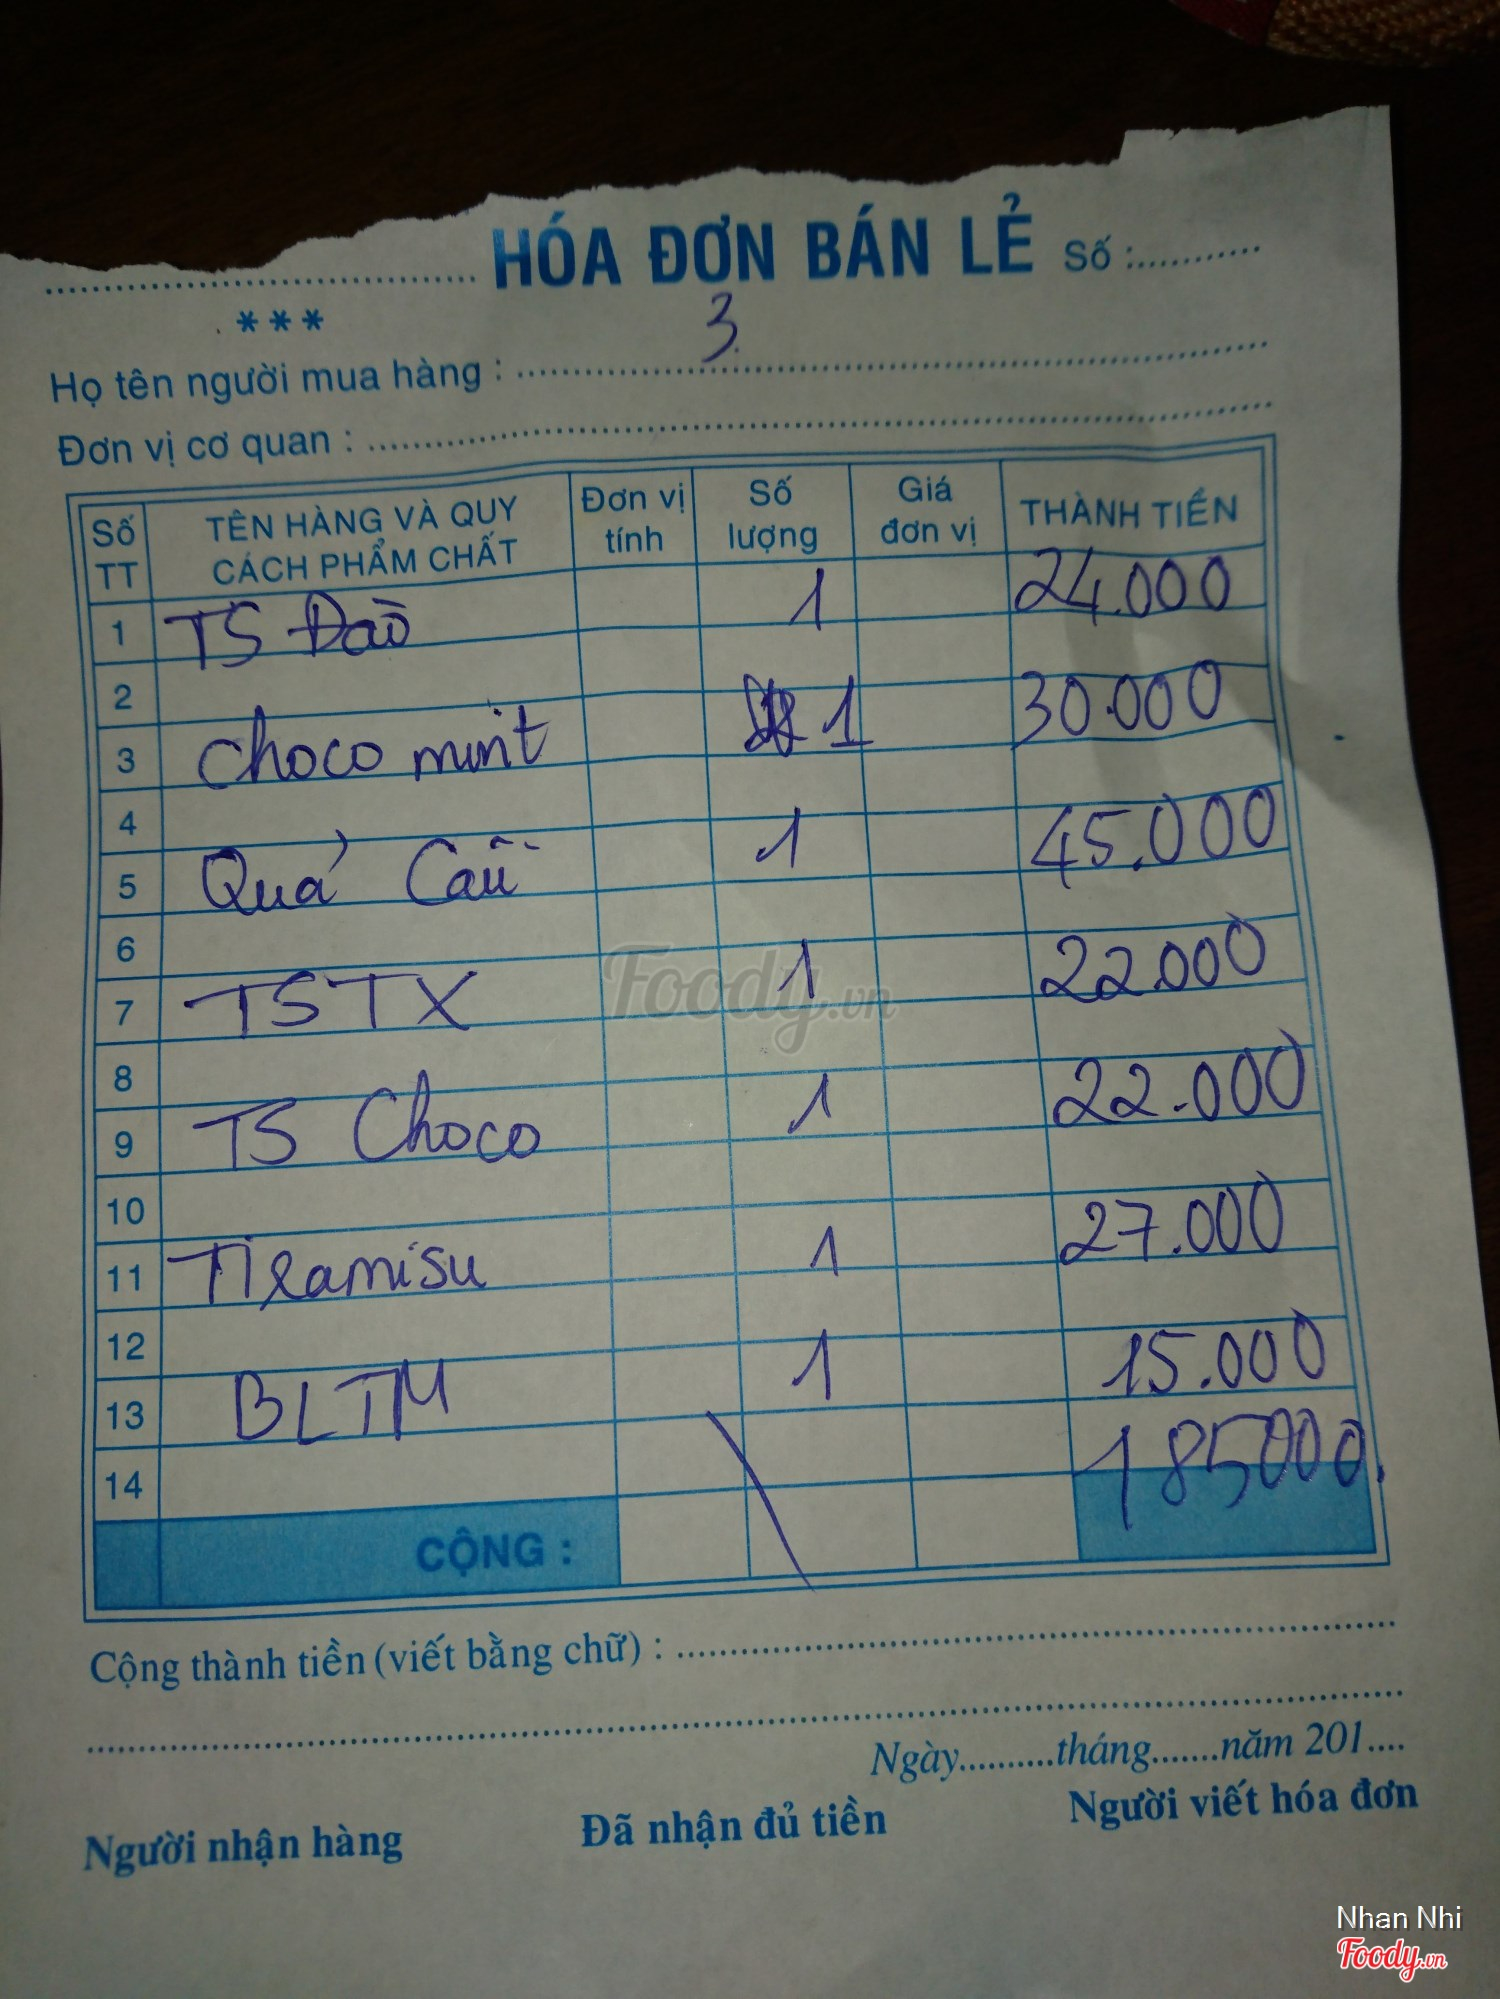 HÓA ĐƠN BÁN LẺ Số :
***
3.
Họ tên người mua hàng :
Đơn vị cơ quan :
Số TT TÊN HÀNG VÀ QUY CÁCH PHẨM CHẤT Đơn vị tính Số lượng Giá đơn vị THÀNH TIỀN
1 TS Đào 1 24.000
2
3 Choco mint 1 30.000
4
5 Quả Cầu 1 45.000
6
7 TSTX 1 22.000
8
9 TS Choco 1 22.000
10
11 Tiramisu 1 27.000
12
13 BLTM 1 15.000
14 185000
CỘNG :
Cộng thành tiền (viết bằng chữ) :
Ngày..........tháng.......năm 201....
Người nhận hàng Đã nhận đủ tiền Người viết hóa đơn
Foody.vn
Nhan Nhi
Foody.vn